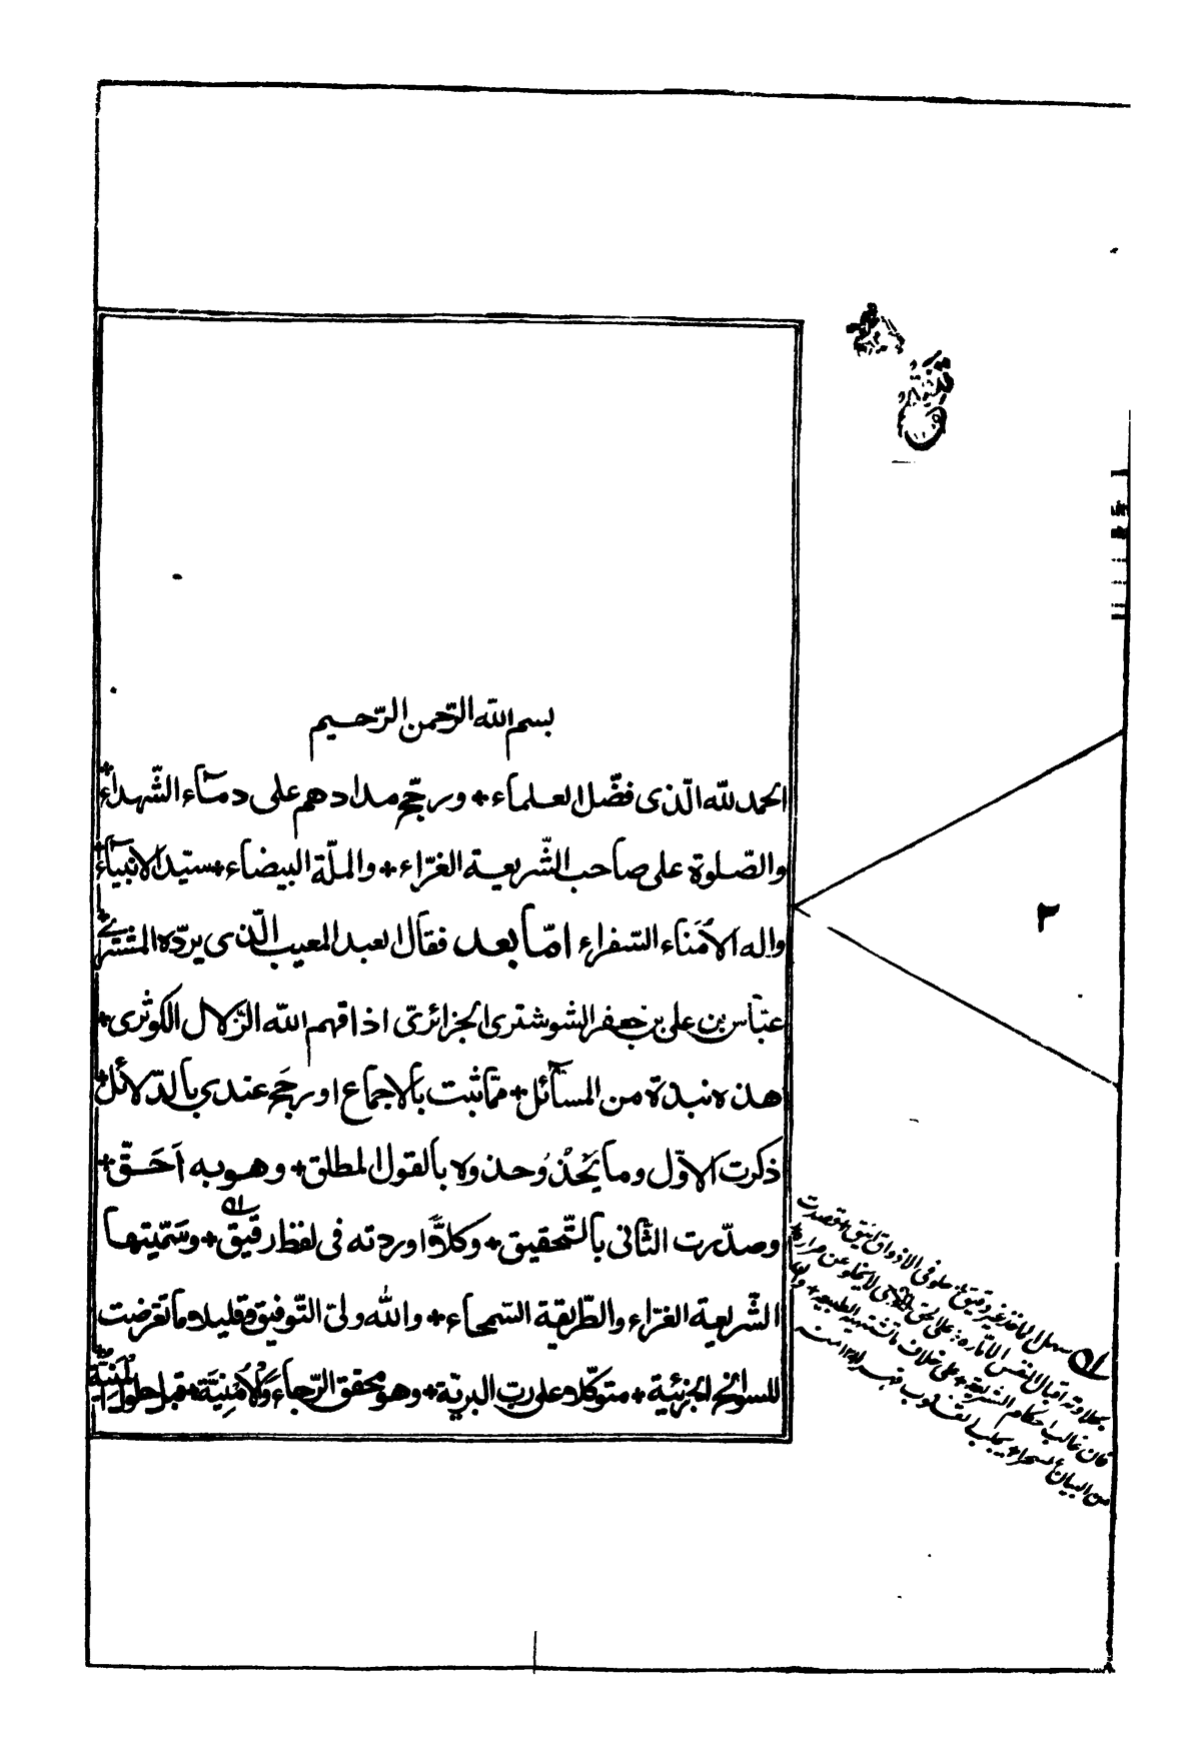 بسم الله الرّحمن الرّحيم
الحمد للّه الّذى فضّل العلماء + ورجّح مدادهم على دمآء الشّهدآء +
والصّلوة على صاحب الشّريعة الغرّاء + والملّة البيضاء + سيّد الانبيآء +
واله الأُمَناء السّفراء امّا بعد فقال العبد المعيب الّذى يردّه المشترى +
عبّاس بن على بن جعفر الشوشترى الجزائرىّ اذاقهم الله الزّلال الكوثرى +
هذه نبذة من المسآئل + ممّا ثبت بالاجماع او رجَح عندي بالدّلائل +
ذكرت الاوّل وما يَحْذُ وُحذوه بالقول المطلق + وهو به اَحَقّ +
وصدّرت الثّانى بالتّحقيق + وكلاًّ اوردته فى لفظ رقيق + وسَمّيتها
الشّريعة الغرّاء والطّريقة السّمحاء + والله ولىّ التّوفيق وقليلا ما تعرضت
للسوانح الجزئية + متوكّلا على ربّ البريّة + وهو محقق الرّجاء وَالْاُمْنِيَّة + قبل حلول المنيّة
٢
سهل الماخذ غير دقيق + حلو فى الاذواق انيق + قصدت
بحلاوته اقبال النفس الامّارة + على الحق الذى لا يخلو عن مرارة +
فان غالب احكام الشريعة + على خلاف ما تشتهيه الطبيعة +
من البيان لسحرا + يجلب القلوب منه